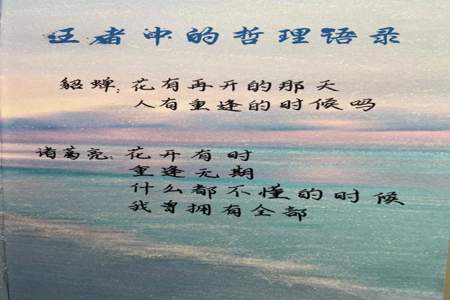 王者中的哲理语录
貂蝉:花有再开的那天
人有重逢的时候吗
诸葛亮:花开有时
重逢无期
什么都不懂的时候
我曾拥有全部